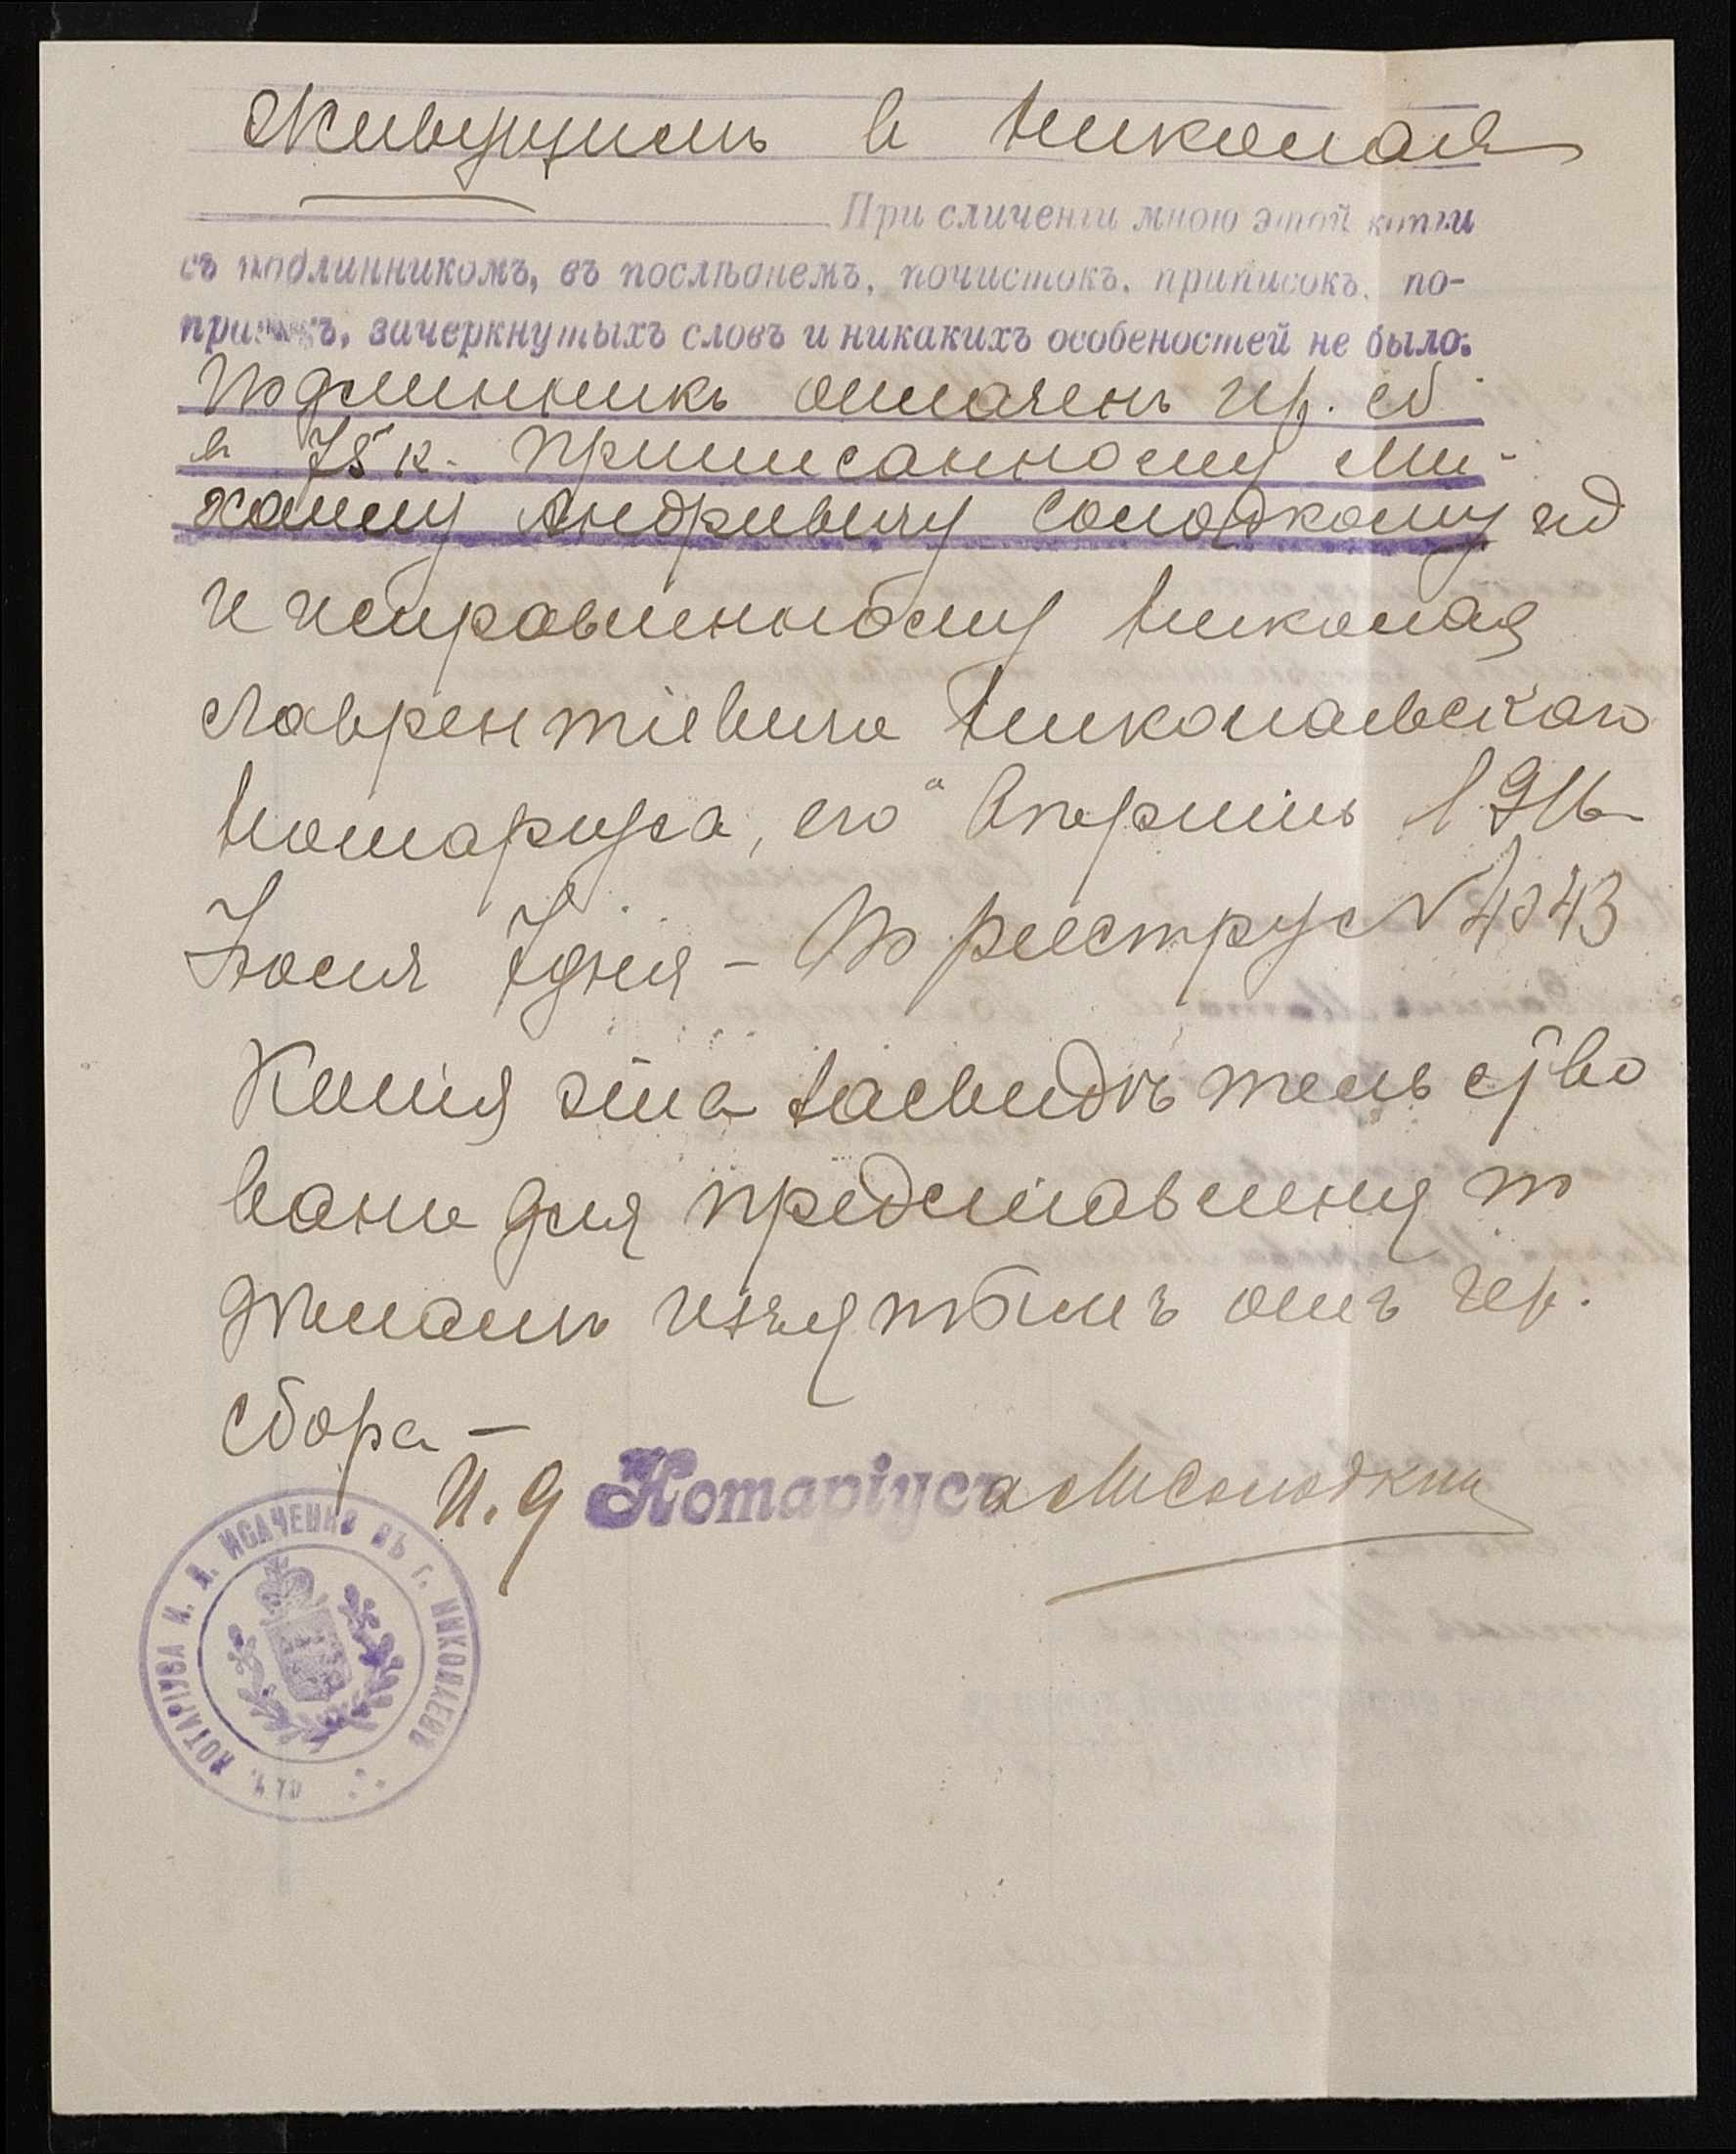 Живущимъ в Николае
При сличеніи мною этой копіи
съ подлинникомъ, въ послѣднемъ, почистокъ, приписокъ, по-
правокъ, зачеркнутыхъ словъ и никакихъ особеностей не было.
Подлинникъ оплаченъ гер. сб
в 75 к. приписанному Ми-
хаилу Андреевичу Солодкому
и исправленному Николая
Лаврентіевича Николаевскаго
Нотаріуса, его Апрѣль 191
дня – По реестру № 4343
Копія эта засвидѣтельство
вана для представленія по
дѣламъ изъятымъ отъ гер.
сбора –
И. д Нотаріуса МСолодкій
НОТАРІУСА И. Д. ИСАЧЕНКО ВЪ Г. НИКОЛАЕВѢ